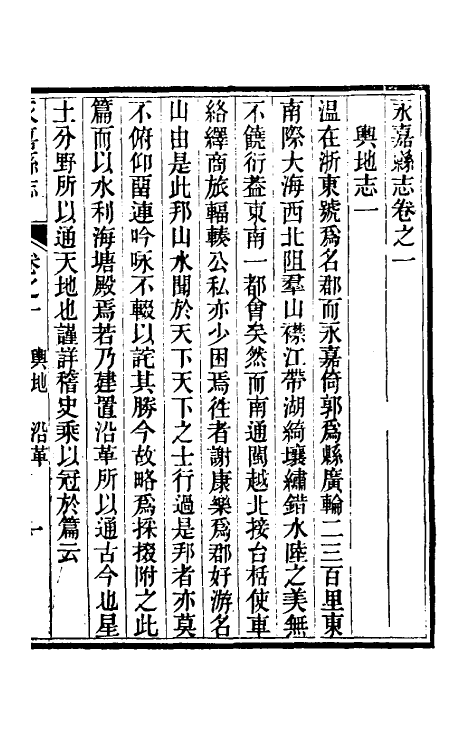 永嘉縣志卷之一
輿地志一
溫在浙東號爲名郡而永嘉倚郭爲縣廣輪二三百里東
南際大海西北阻羣山襟江帶湖綺壤繡錯水陸之美無
不饒衍蓋東南一都會矣然而南通閩越北接台栝使車
絡繹商旅輻輳公私亦少困焉徃者謝康樂爲郡好游名
山由是此邦山水聞於天下天下之士行過是邦者亦莫
不俯仰畱連吟咏不輟以詫其勝今故略爲採掇附之此
篇而以水利海塘殿焉若乃建置沿革所以通古今也星
土分野所以通天地也謹詳稽史乘以冠於篇云
永嘉縣志 卷之一 輿地 沿革 一